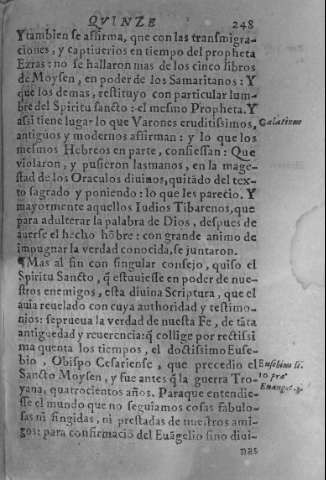 QVINZE 248
Y tambien se affirma, que con las transmigra-
ciones, y captiuerios en tiempo del propheta
Ezras: no se hallaron mas de los cinco libros
de Moysen, en poder de los Samaritanos: Y
que los demas, restituyo con particular lum-
bre del Spiritu sancto: el mesmo Propheta. Y
assi tiene lugar lo que Varones eruditissimos,
Galatinus
antiguos y modernos affirman: y lo que los
mesmos Hebreos en parte, confiessan: Que
violaron, y pusieron las manos, en la mage-
stad de los Oraculos diuinos, quitãdo del tex-
to sagrado y poniendo: lo que les parecio. Y
mayormente aquellos Iudios Tibarenos, que
para adulterar la palabra de Dios, despues de
auerse el hecho hõbre: con grande animo de
impugnar la verdad conocida, se juntaron.
¶Mas al fin con singular consejo, quiso el
Spiritu Sancto, q̃ estuuiesse en poder de nue-
stros enemigos, esta diuina Scriptura, que el
auia reuelado con cuya authoridad y testimo-
nios: se prueua la verdad de nuestra Fe, de tãta
antiguedad y reuerencia: q̃ collige por rectissi
ma quenta los tiempos, el doctissimo Euse-
bio, Obispo Cesariense, que precedio el
Eusebius li.
Sancto Moysen, y fue antes q̃ la guerra Tro-
10 præ
yana, quatrocientos años. Paraque entendie-
Euang.
sse el mundo que no seguiamos cosas fabulo-
sas ni fingidas, ni prestadas de nuestros ami-
gos: para confirmaciõ del Euãgelio sino diui-
nas